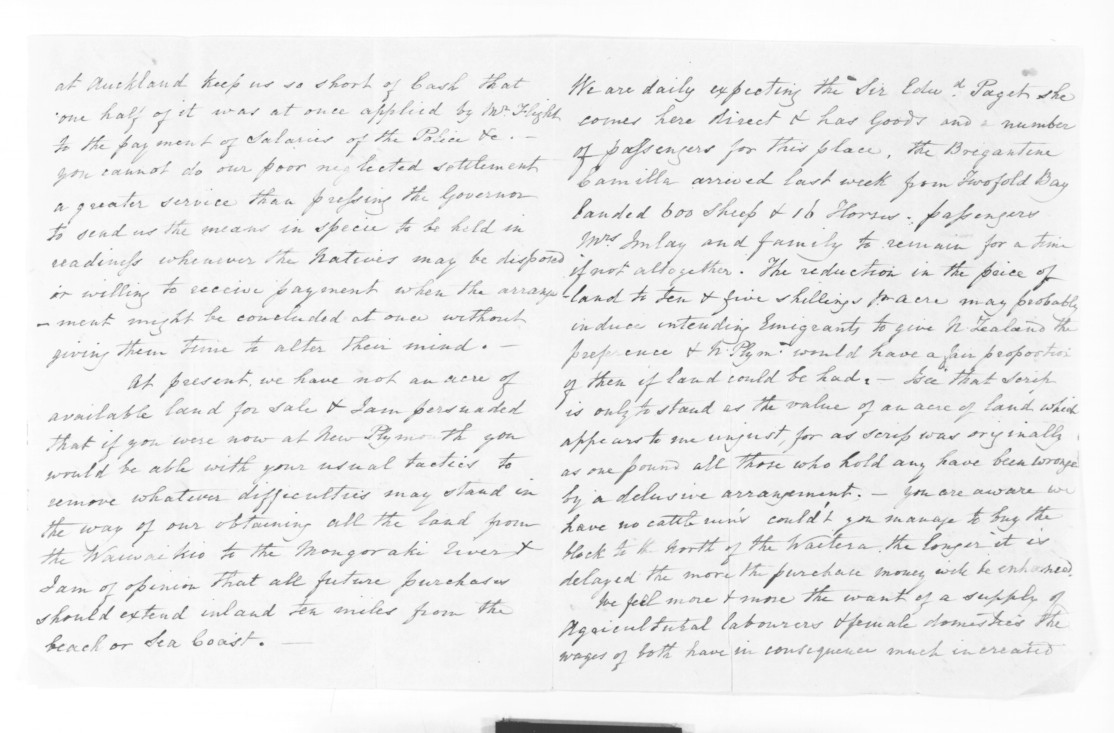 at Auckland keep us so short of Cash that
one half of it was at once applied by Mr. Flight
to the payment of Salaries of the Police &c. —
you cannot do our poor neglected settlement
a greater service than pressing the Governor
to send us the means in specie to be held in
readiness whenever the Natives may be disposed
or willing to receive payment when the arrange
-ment might be concluded at once without
giving them time to alter their mind. —
At present we have not an acre of
available land for sale & I am persuaded
that if you were now at New Plymouth you
would be able with your usual tactics to
remove whatever difficulties may stand in
the way of our obtaining all the land from
the Waiwaikio to the Mongoraki River &
I am of opinion that all future purchases
should extend inland ten miles from the
beach or Sea Coast. —
We are daily expecting the Sir Edwd. Paget she
comes here direct & has Goods and a number
of passengers for this place, the Brigantine
Camilla arrived last week from Twofold Bay
landed 600 Sheep & 16 Horses. passengers
Mrs Imlay and family to remain for a time
if not altogether. The reduction in the price of
land to ten & five shillings pr acre may probably
induce intending Emigrants to give N Zealand the
preference & N. Plymo. would have a fair proportion
of them if land could be had. — I see that scrip
is only to stand as the value of an acre of land which
appears to me unjust, for as scrip was originally
as one pound all those who hold any have been wronged
by a delusive arrangement. — You are aware we
have no cattle runs couldn't you manage to buy the
block to the North of the Waitera, the longer it is
delayed the more the purchase money will be enhanced.
We feel more & more the want of a supply of
Agricultural labourers & female domestics the
wages of both have in consequence much increased